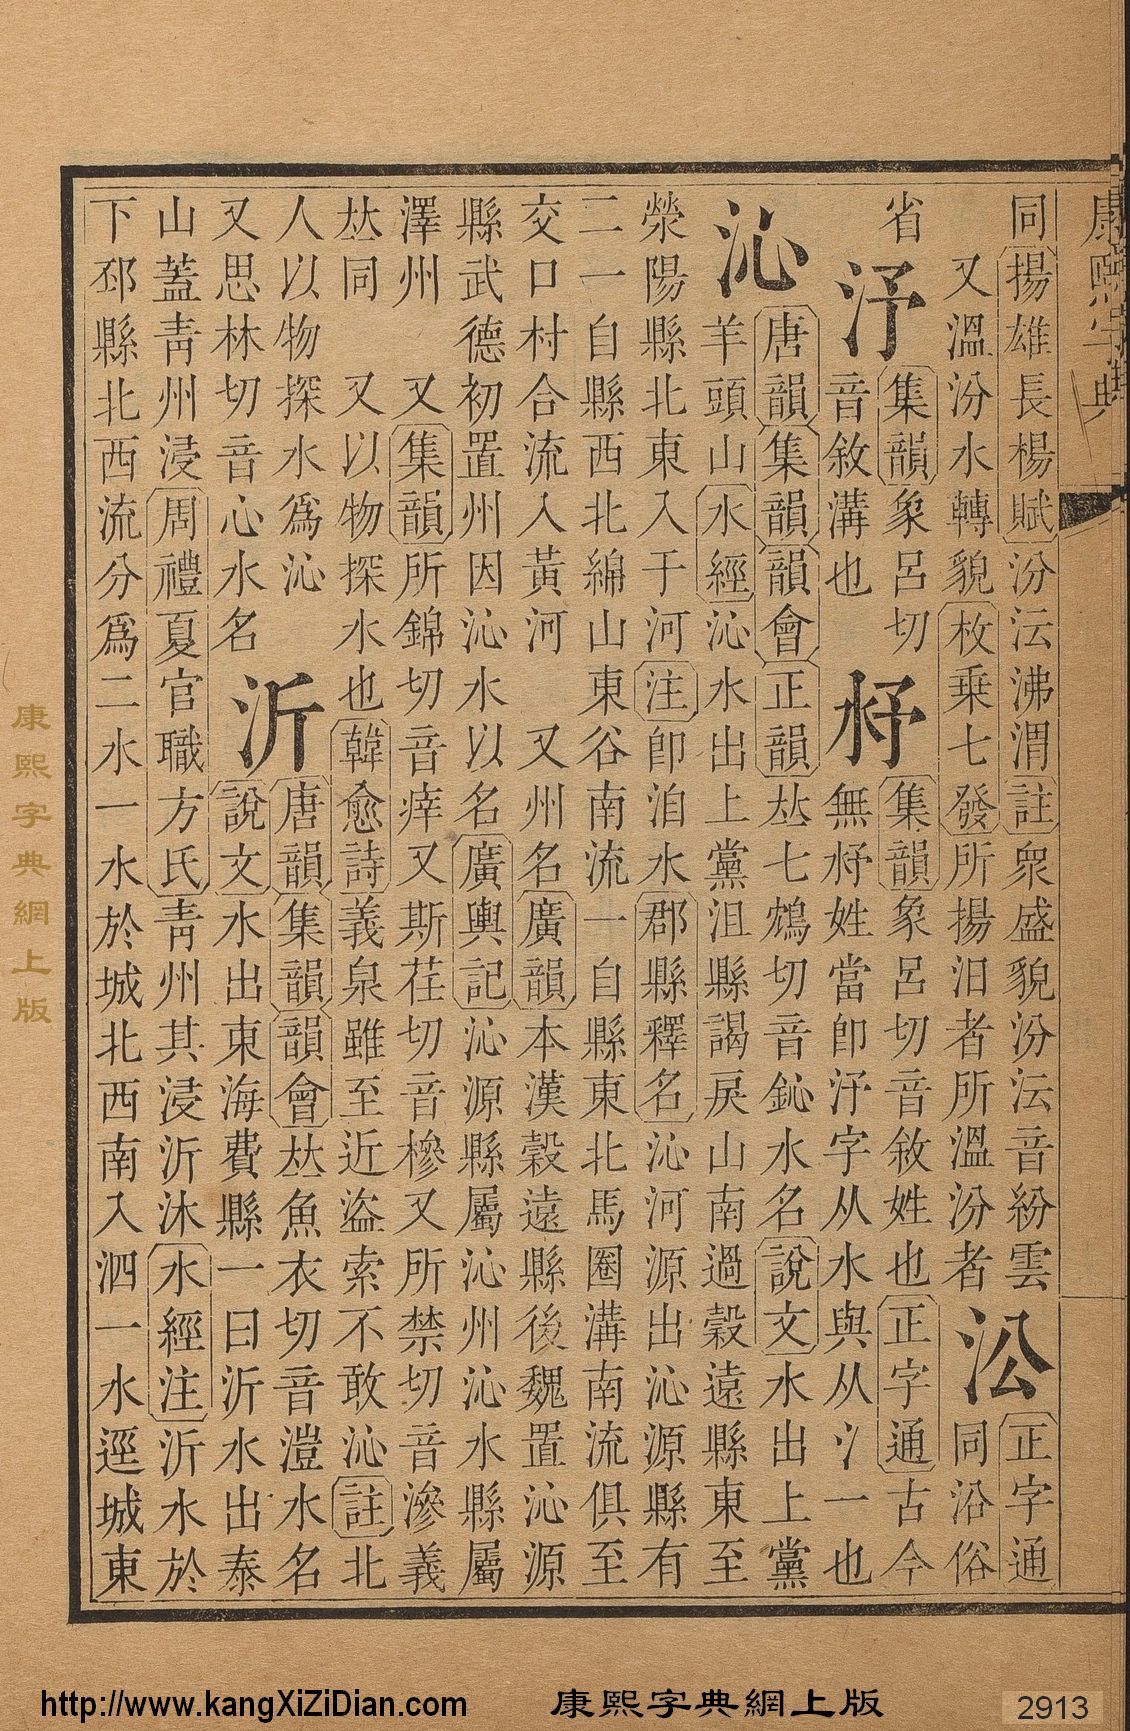 康熙字典
同揚雄長楊賦汾沄沸渭註衆盛貌汾沄音紛雲
又溫汾水轉貌枚乗七發所揚汨者所溫汾者
㳂
正字通
同沿俗
省
汿
集韻象呂切
音敘溝也
集韻象呂切音敘姓也正字通古今
無姓當卽汿字从水與从氵一也
沁
唐韻集韻韻會正韻𠀤七鴆切音鈊水名說文水出上黨
羊頭山水經沁水出上黨沮縣謁戾山南過穀遠縣東至
滎陽縣北東入于河注卽洎水郡縣釋名沁河源出沁源縣有
二一自縣西北綿山東谷南流一自縣東北馬圈溝南流俱至
交口村合流入黃河 又州名廣韻本漢穀遠縣後魏置沁源
縣武德初置州因沁水以名廣輿記沁源縣屬沁州沁水縣屬
澤州 又集韻所錦切音痒又斯荏切音槮又所禁切音滲義
𠀤同 又以物探水也韓愈詩義泉雖至近盜索不敢沁註北
人以物探水爲沁
又思林切音心水名
沂
唐韻集韻韻會𠀤魚衣切音溰水名
說文水出東海費縣一曰沂水出泰
山蓋靑州浸周禮夏官職方氏靑州其浸沂沭水經注沂水於
下邳縣北西流分爲二水一水於城北西南入泗一水逕城東
康熙字典網上版
http://www.kangXiZiDian.com 康熙字典網上版 2913